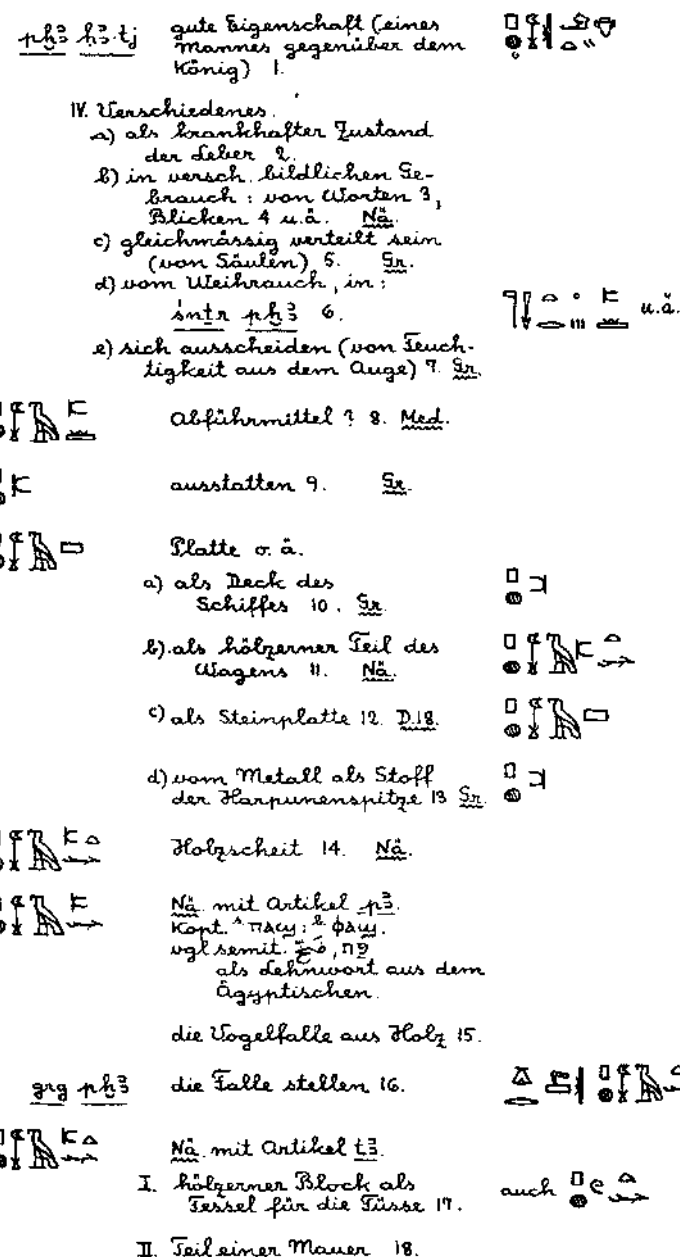 pḫꜣ ḥꜣ.tj gute Eigenschaft (eines
Mannes gegenüber dem
König) 1.
IV. Verschiedenes.
a) als krankhafter Zustand
der Leber 2.
b) in versch. bildlichen Ge-
brauch: von Worten 3,
Blicken 4 u.ä. Nä.
c) gleichmässig verteilt sein
(von Säulen) 5. Gr.
d) vom Weihrauch, in:
śnṯr pḫꜣ 6. u.ä.
e) sich ausscheiden (von Feuch-
tigkeit aus dem Auge) 7. Gr.
Abführmittel? 8. Med.
ausstatten 9. Gr.
Platte o. ä.
a) als Deck des
Schiffes 10. Gr.
b) als hölzerner Teil des
Wagens 11. Nä.
c) als Steinplatte 12. D.18.
d) vom Metall als Stoff
der Harpunenspitze 13 Gr.
Holzscheit 14. Nä.
Nä. mit Artikel pꜣ.
Kopt. ᴬ· ⲡⲁϣ: ᴮ· ⲫⲁϣ.
vgl semit. فخ, פח
als Lehnwort aus dem
Ägyptischen.
die Vogelfalle aus Holz 15.
grg pḫꜣ die Falle stellen 16.
Nä. mit Artikel tꜣ.
I. hölzerner Block als
Fessel für die Füsse 17. auch
II. Teil einer Mauer 18.